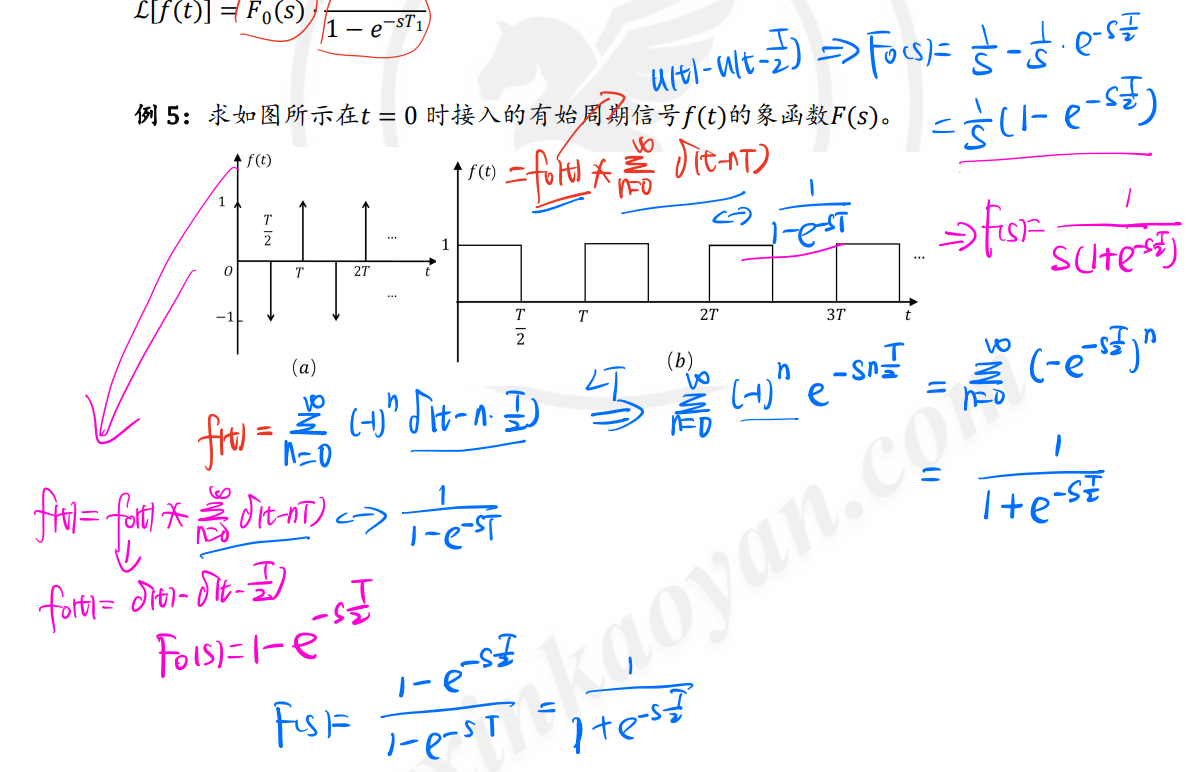 ℒ[f(t)] = F₀(s) · 1/(1 − e^(−sT₁))
u(t)-u(t-T/2) ⇒ F₀(s)= 1/s - 1/s · e^(-sT/2)
= 1/s (1- e^(-sT/2))
例 5：求如图所示在t = 0 时接入的有始周期信号f(t)的象函数F(s)。
f(t)
1
T/2
...
O
T
2T
t
...
−1
(a)
f(t) = f₀(t) * ∑_(n=0)^∞ δ(t-nT)
↔ 1/(1-e^(-sT))
⇒ F(s)= 1/(s(1+e^(-sT/2)))
1
...
T/2
T
2T
3T
t
(b)
f(t) = ∑_(n=0)^∞ (-1)^n δ(t-n·T/2) LT⇒ ∑_(n=0)^∞ (-1)^n e^(-snT/2) = ∑_(n=0)^∞ (-e^(-sT/2))^n
= 1/(1+e^(-sT/2))
f(t)= f₀(t) * ∑_(n=0)^∞ δ(t-nT) ↔ 1/(1-e^(-sT))
f₀(t)= δ(t)-δ(t-T/2)
F₀(s)=1-e^(-sT/2)
F(s)= (1-e^(-sT/2))/(1-e^(-sT)) = 1/(1+e^(-sT/2))
xinkaoyan.com